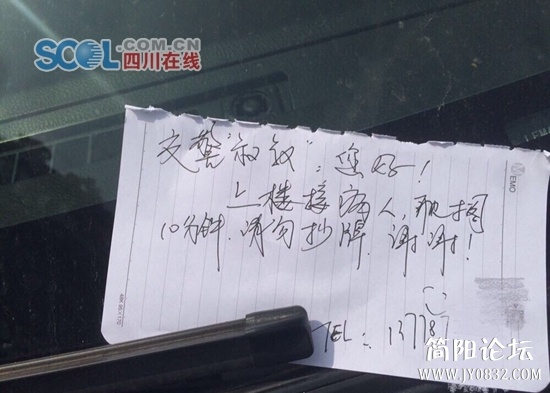 SCOL.COM.CN
四川在线
MEMO
交警"叔叔":您好!
上楼接病人,耽搁
10分钟.请勿抄牌.谢谢!
TEL:13778
简阳论坛
www.JY0832.com